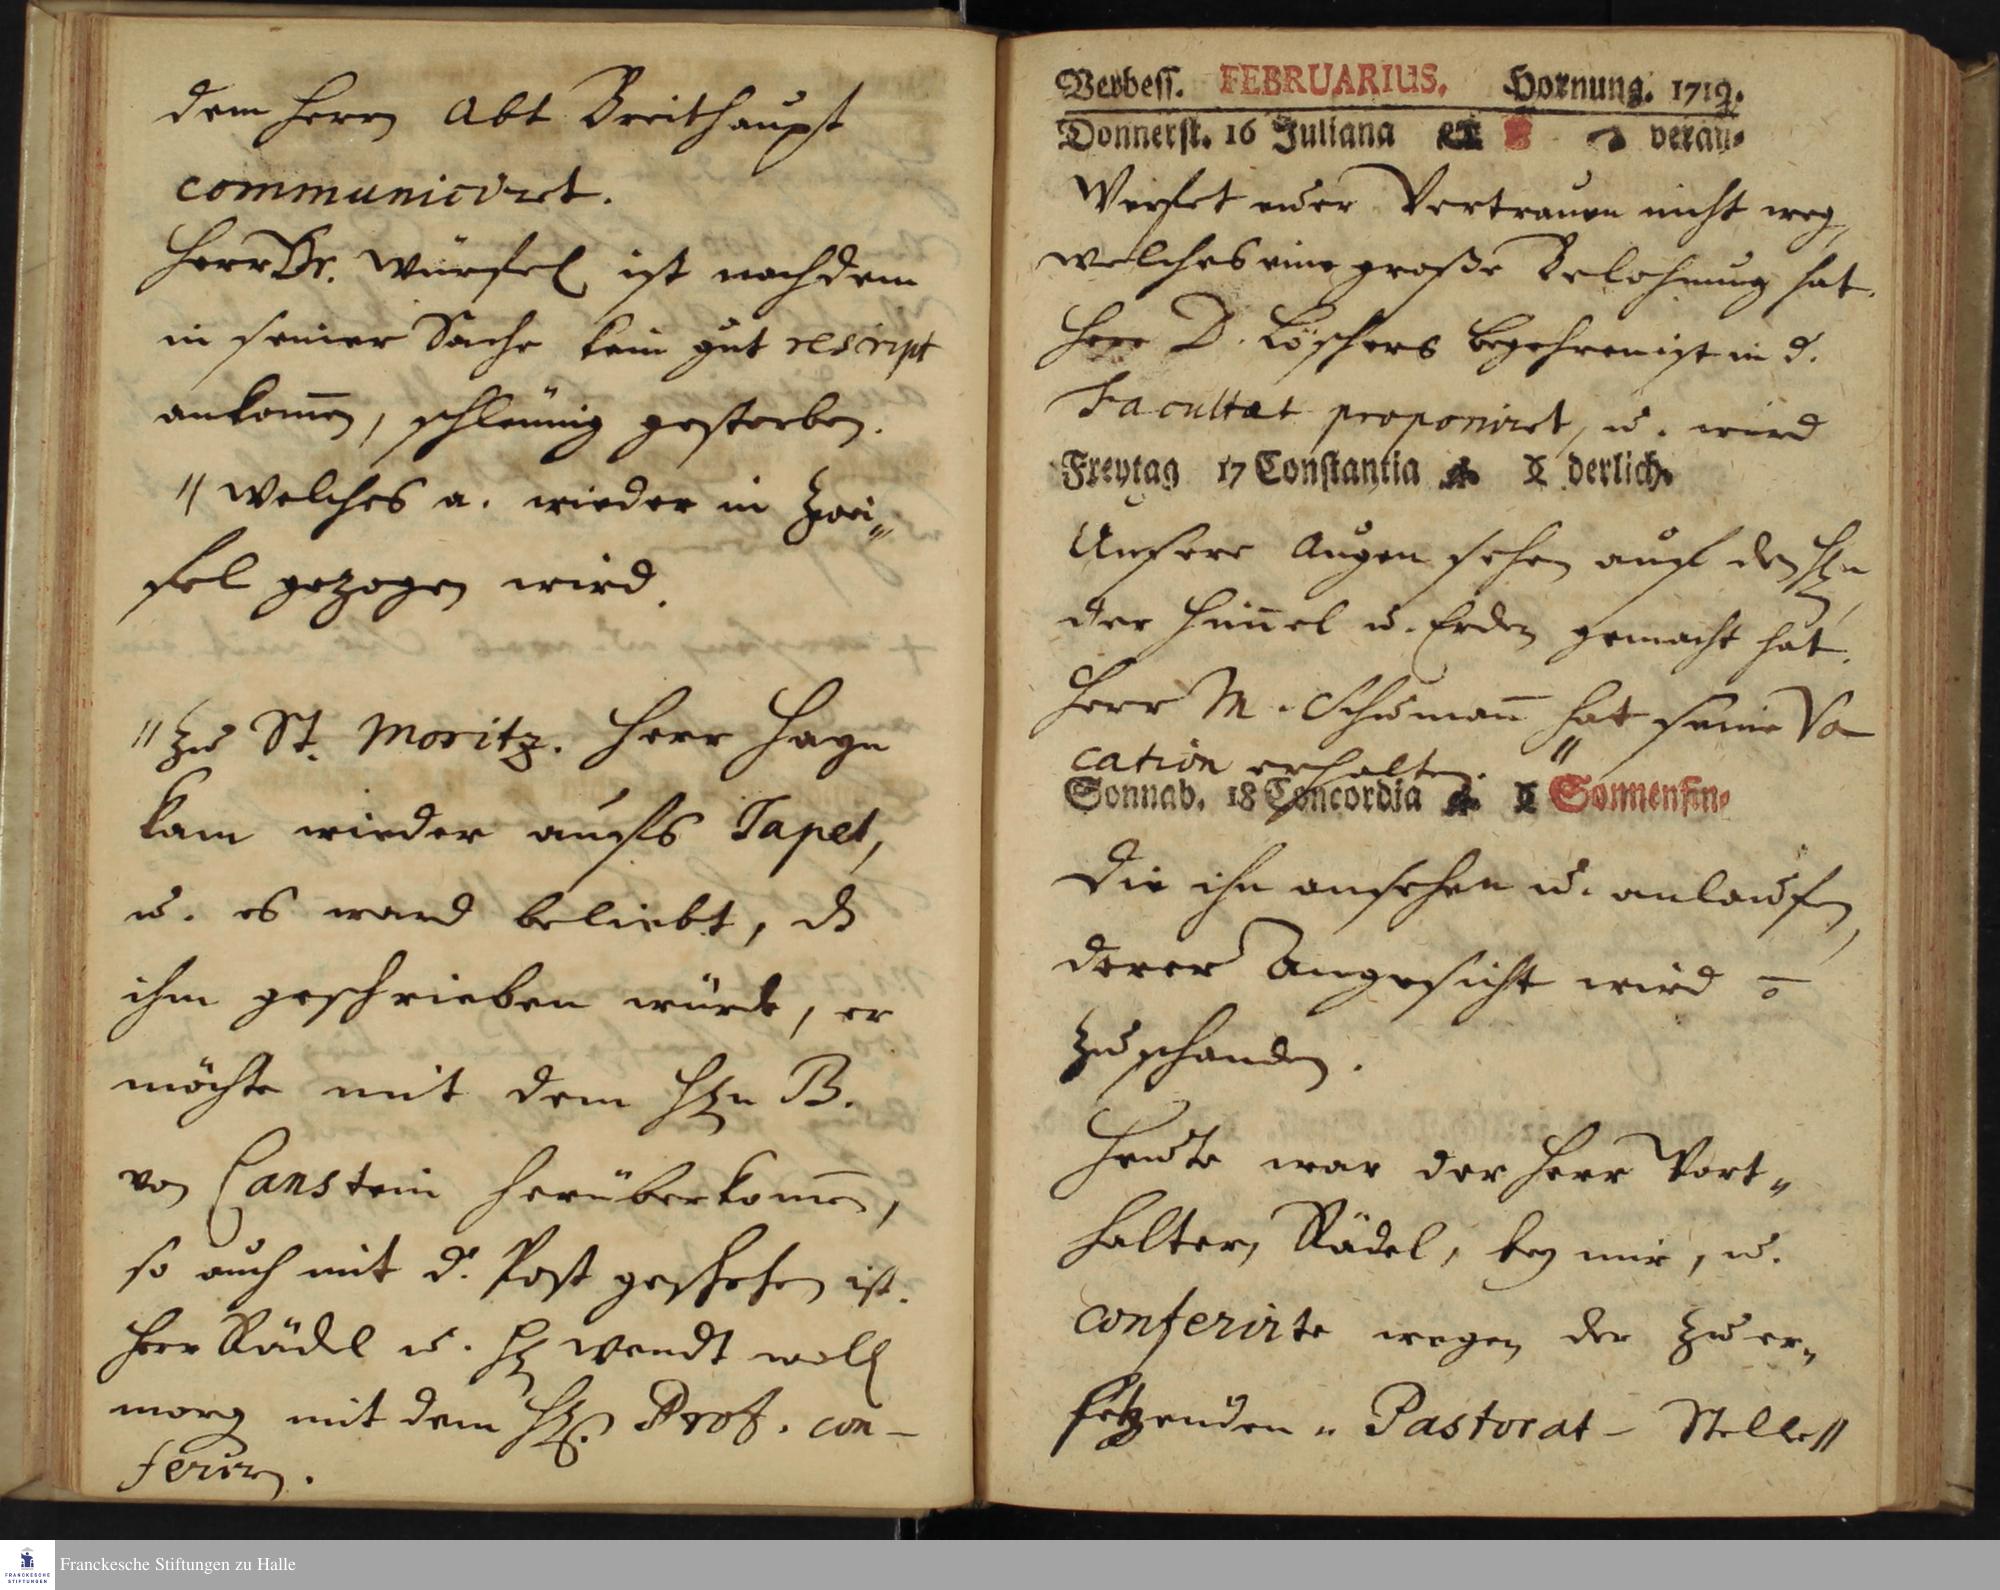 dem Herrn Abt Breithaupt
communiciret.
Herr Dr. Würfel ist nachdem
in seiner Sache kein gut rescript
ankom̄en, schleünig gestorben.
// welches a. wieder in Zwei„
fel gezogen wird.
// zu St. Moritz. Herr Hayn
kam wieder aufs Tapet,
u. es ward beliebt, dz
ihm geschrieben würde, er
möchte mit dem Hn B.
von Canstein herüberkom̄en,
so auch mit d. Post geschehen ist.
Herr Rädel u. H. Wendt woll
morg mit dem H. Prof. con-
ferir̄en.
Verbess. FEBRUARIUS. Hornung. 1719.
Donnerst. 16 Juliana verän-
Werfet euer Vertrauen nicht weg,
welches eine große Belohnung hat.
Herr D. Löschers Begehren ist in d.
Facultæt proponiret, u. wird
Freytag 17 Constantia derlich.
Unsere Augen sehen auf den Hn
der Him̄el u. Erden gemacht hat.
Herr M. Schuman̄ hat seine Vo-
cation erhalten.
Sonnab. 18 Concordia Sonnenfin-
Die ihn ansehen u. anlaufen,
derer Angesicht wird
zu schanden.
Heute war der Herr Vort„
halter, Rädel, bey mir, u.
conferirte wegen der zu er„
setzenden „ Pastorat- Stelle //
Franckesche Stiftungen zu Halle
FRANCKESCHE
STIFTUNGEN